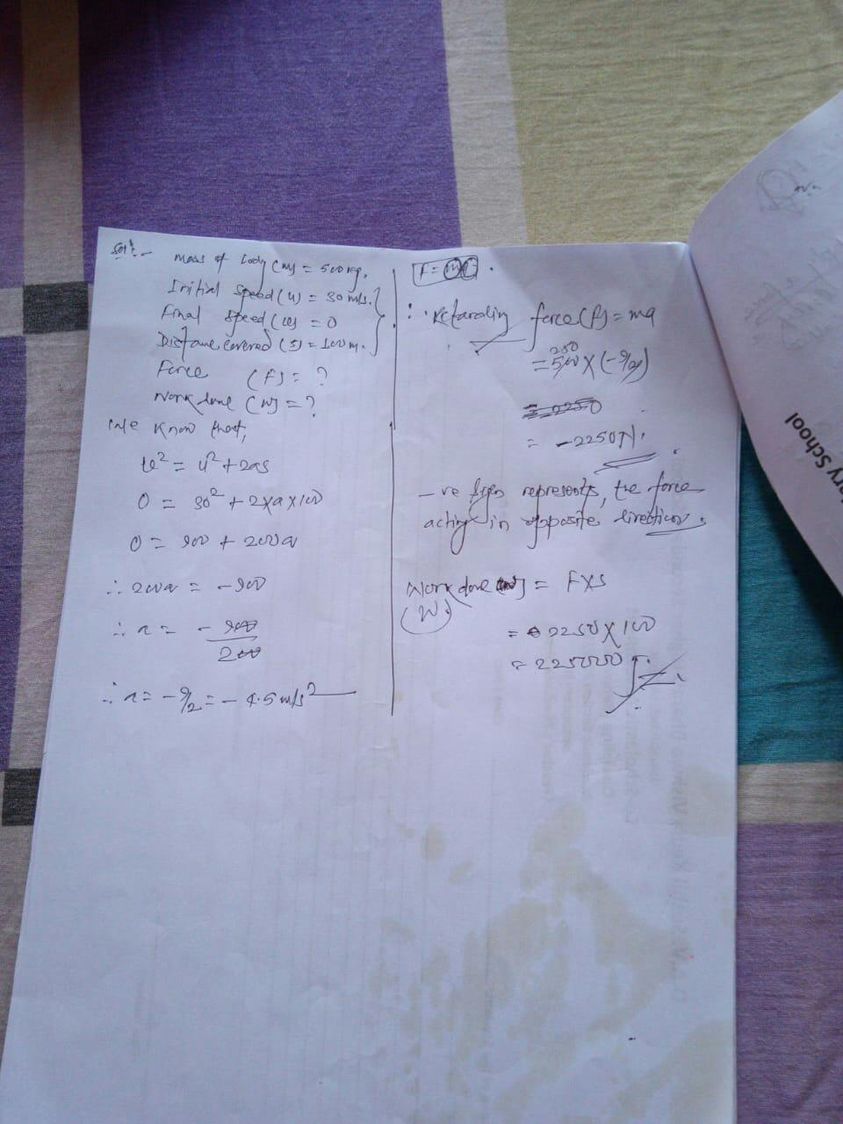 Solⁿ:- Mass of body (m) = 500 kg.
Initial speed (u) = 30 m/s.
Final speed (v) = 0
Distance covered (s) = 100 m.
Force (F) = ?
Work done (W) = ?
We know that,
v² = u² + 2as
0 = 30² + 2×a×100
0 = 900 + 200a
∴ 200a = -900
∴ a = -900/200
∴ a = -9/2 = -4.5 m/s²
F = ma.
∴ Retarding force (F) = ma
250
= 500 × (-9/2)
= -2250
= -2250 N.
-ve sign represents, the force
acting in opposite direction.
Work done (W) = F×s
(W)
= 2250 × 100
= 225000 J.
ary School